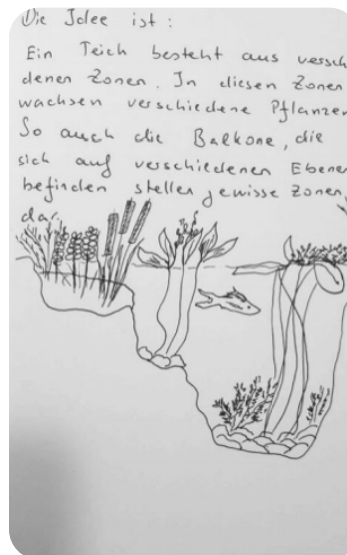 Die Idee ist:
Ein Teich besteht aus versch
denen Zonen. In diesen Zonen
wachsen verschiedene Pflanzen
So auch die Balkone, die
sich auf verschiedenen Ebenen
befinden stellen gewisse Zonen
dar.